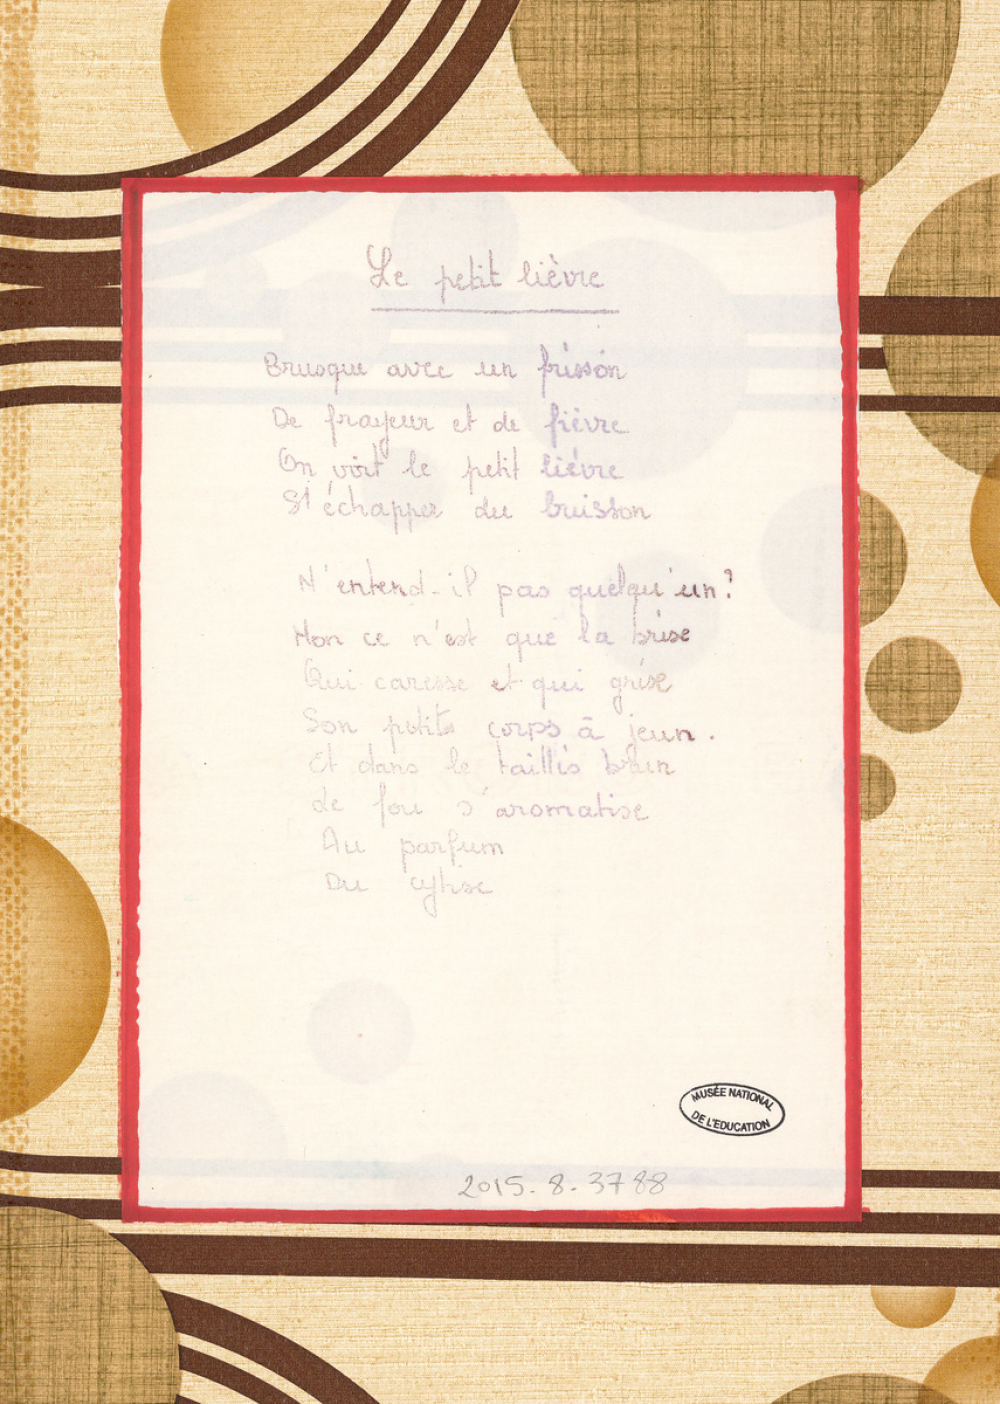 Le petit lièvre
Brusque avec un frisson
De frayeur et de fièvre
On voit le petit lièvre
S'échapper du buisson
N'entend-il pas quelqu'un ?
Non ce n'est que la brise
Qui caresse et qui grise
Son petits corps à jeun.
Et dans le taillis brun
Le fou s'aromatise
Au parfum
Du cytise
MUSÉE NATIONAL
DE L'EDUCATION
2015.8.3788